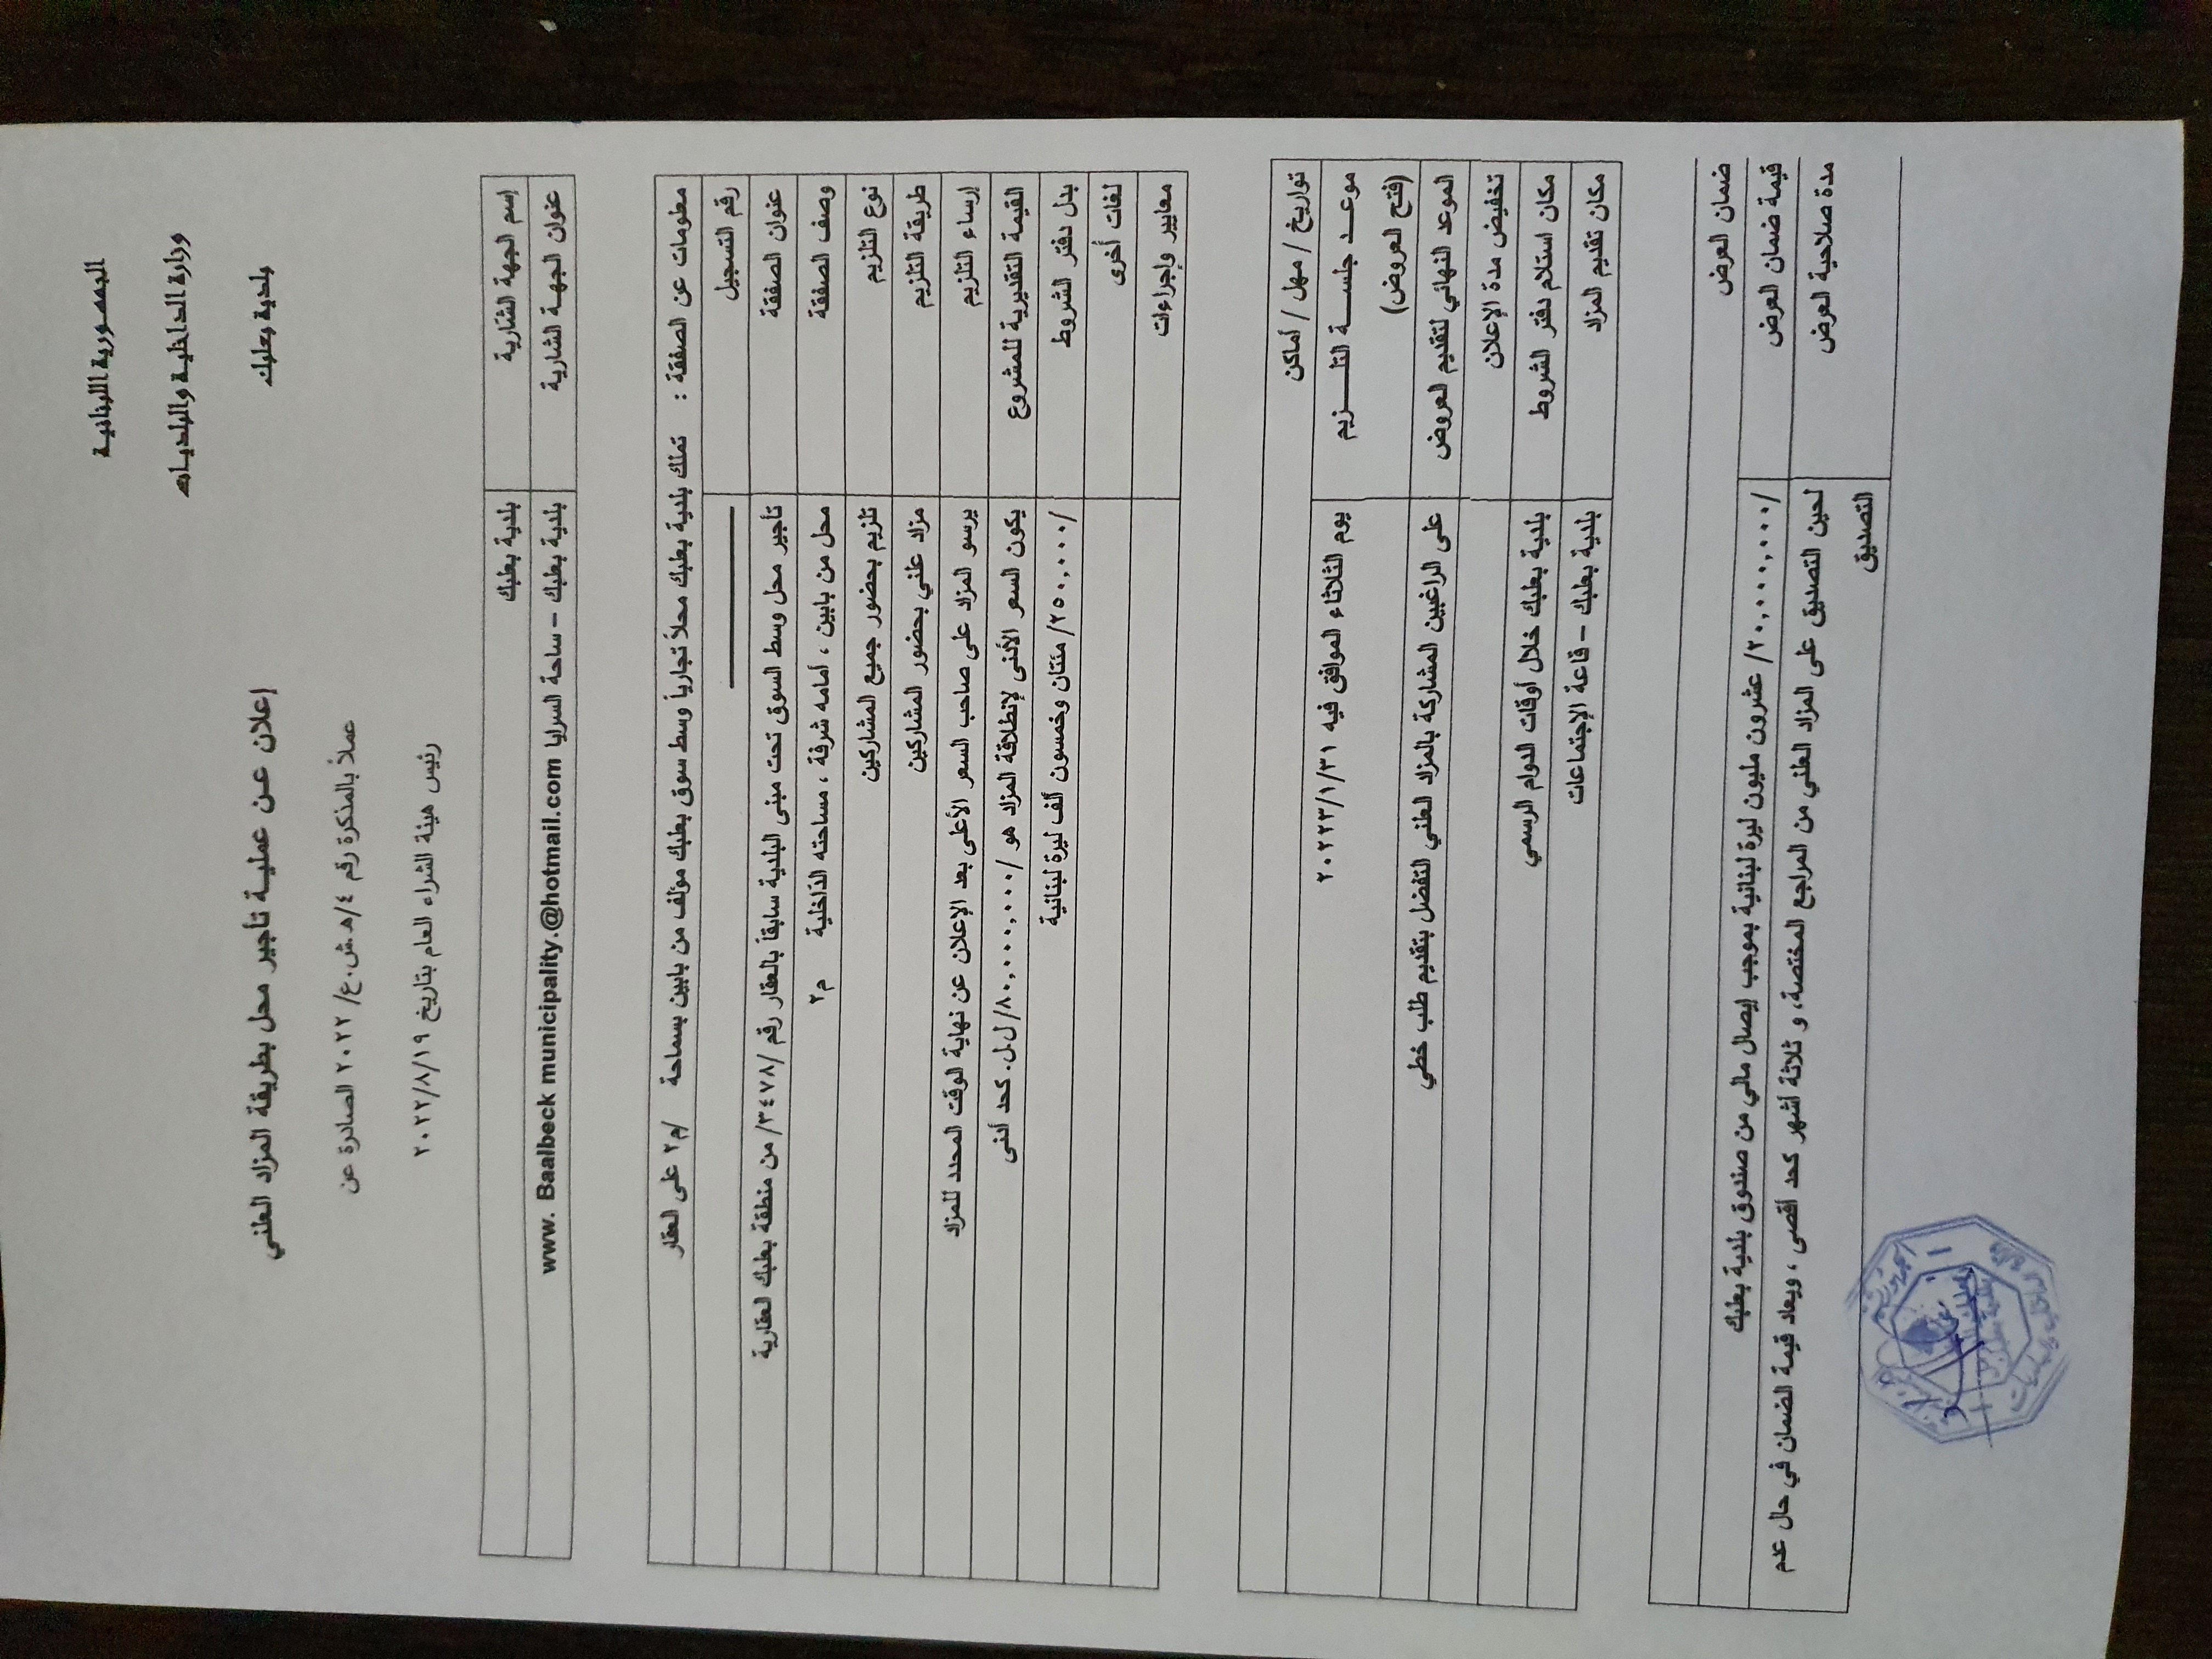 الجمهورية اللبنانية
وزارة الداخلية والبلديات
بلدية بعلبك
إعلان عن عملية تأجير محل بطريقة المزاد العلني
عملاً بالمذكرة رقم ٤/ه.ش.ع/٢٠٢٢ الصادرة عن
رئيس هيئة الشراء العام بتاريخ ٢٠٢٢/٨/١٩
إسم الجهة الشارية بلدية بعلبك
عنوان الجهة الشارية بلدية بعلبك – ساحة السرايا www. Baalbeck municipality.@hotmail.com
معلومات عن الصفقة : تملك بلدية بعلبك محلاً تجارياً وسط سوق بعلبك مؤلف من بابين بسماحة /م٢ على العقار
رقم التسجيل
عنوان الصفقة تأجير محل وسط السوق تحت مبنى البلدية سابقاً بالعقار رقم /٣٤٧٨/ من منطقة بعلبك العقارية
وصف الصفقة محل من بابين ، أمامه شرفة ، مساحته الداخلية م٢
نوع التلزيم تلزيم بحضور جميع المشاركين
طريقة التلزيم مزاد علني بحضور المشاركين
إرساء التلزيم يرسو المزاد على صاحب السعر الأعلى بعد الإعلان عن نهاية الوقت المحدد للمزاد
القيمة التقديرية للمشروع يكون السعر الأدنى لإنطلاقة المزاد هو /٨٠,٠٠٠,٠٠٠/ل.ل. كحد أدنى
بدل دفتر الشروط /٢٥٠,٠٠٠/ مئتان وخمسون ألف ليرة لبنانية
لغات أخرى
معايير وإجراءات
تواريخ / مهل / أماكن
موعد جلسة التلزيم يوم الثلاثاء الموافق فيه ٢٠٢٢٣/١/٣١
(فتح العروض)
الموعد النهائي لتقديم العروض على الراغبين المشاركة بالمزاد العلني التفضل بتقديم طلب خطي
تخفيض مدة الإعلان
مكان استلام دفتر الشروط بلدية بعلبك خلال أوقات الدوام الرسمي
مكان تقديم المزاد بلدية بعلبك – قاعة الإجتماعات
ضمان العرض
قيمة ضمان العرض /٢٠,٠٠٠,٠٠٠/ عشرون مليون ليرة لبنانية بموجب إيصال مالي من صندوق بلدية بعلبك
مدة صلاحية العرض لحين التصديق على المزاد العلني من المراجع المختصة، و ثلاثة أشهر كحد أقصى ، ويعاد قيمة الضمان في حال عدم
التصديق